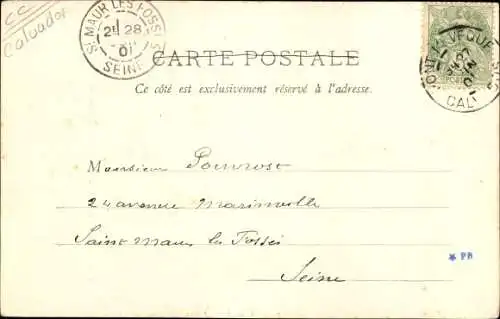 CC
Calvados
ST MAUR LES FOSSES
2E 28
01
SEINE
PONT L'EVEQUE
27
CALV
CARTE POSTALE
Ce côté est exclusivement réservé à l'adresse.
Monsieur
24 avenue Marinville
Saint Maur les Fossés
Seine
* PB